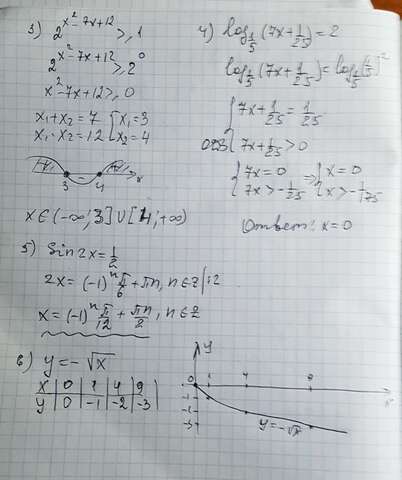 3) 2^(x²-7x+12) ≥ 1
2^(x²-7x+12) ≥ 2⁰
x²-7x+12 ≥ 0
x₁+x₂=7 { x₁=3
x₁·x₂=12 { x₂=4
+ - +
3 4 x
x∈(-∞;3]∪[4;+∞)
4) log_(1/5)(7x+1/25)=2
log_(1/5)(7x+1/25)=log_(1/5)(1/5)²
{ 7x+1/25=1/25
ОДЗ { 7x+1/25>0
{ 7x=0 ⇒ { x=0
{ 7x>-1/25 { x>-1/175
Ответ: x=0
5) sin2x=1/2
2x=(-1)ⁿ π/6+πn, n∈Z |:2
x=(-1)ⁿ π/12+πn/2, n∈Z
6) y=-√x
x | 0 | 1 | 4 | 9
y | 0 | -1 | -2 | -3
y
0 1 4 9
x
-1
-2
-3
y=-√x